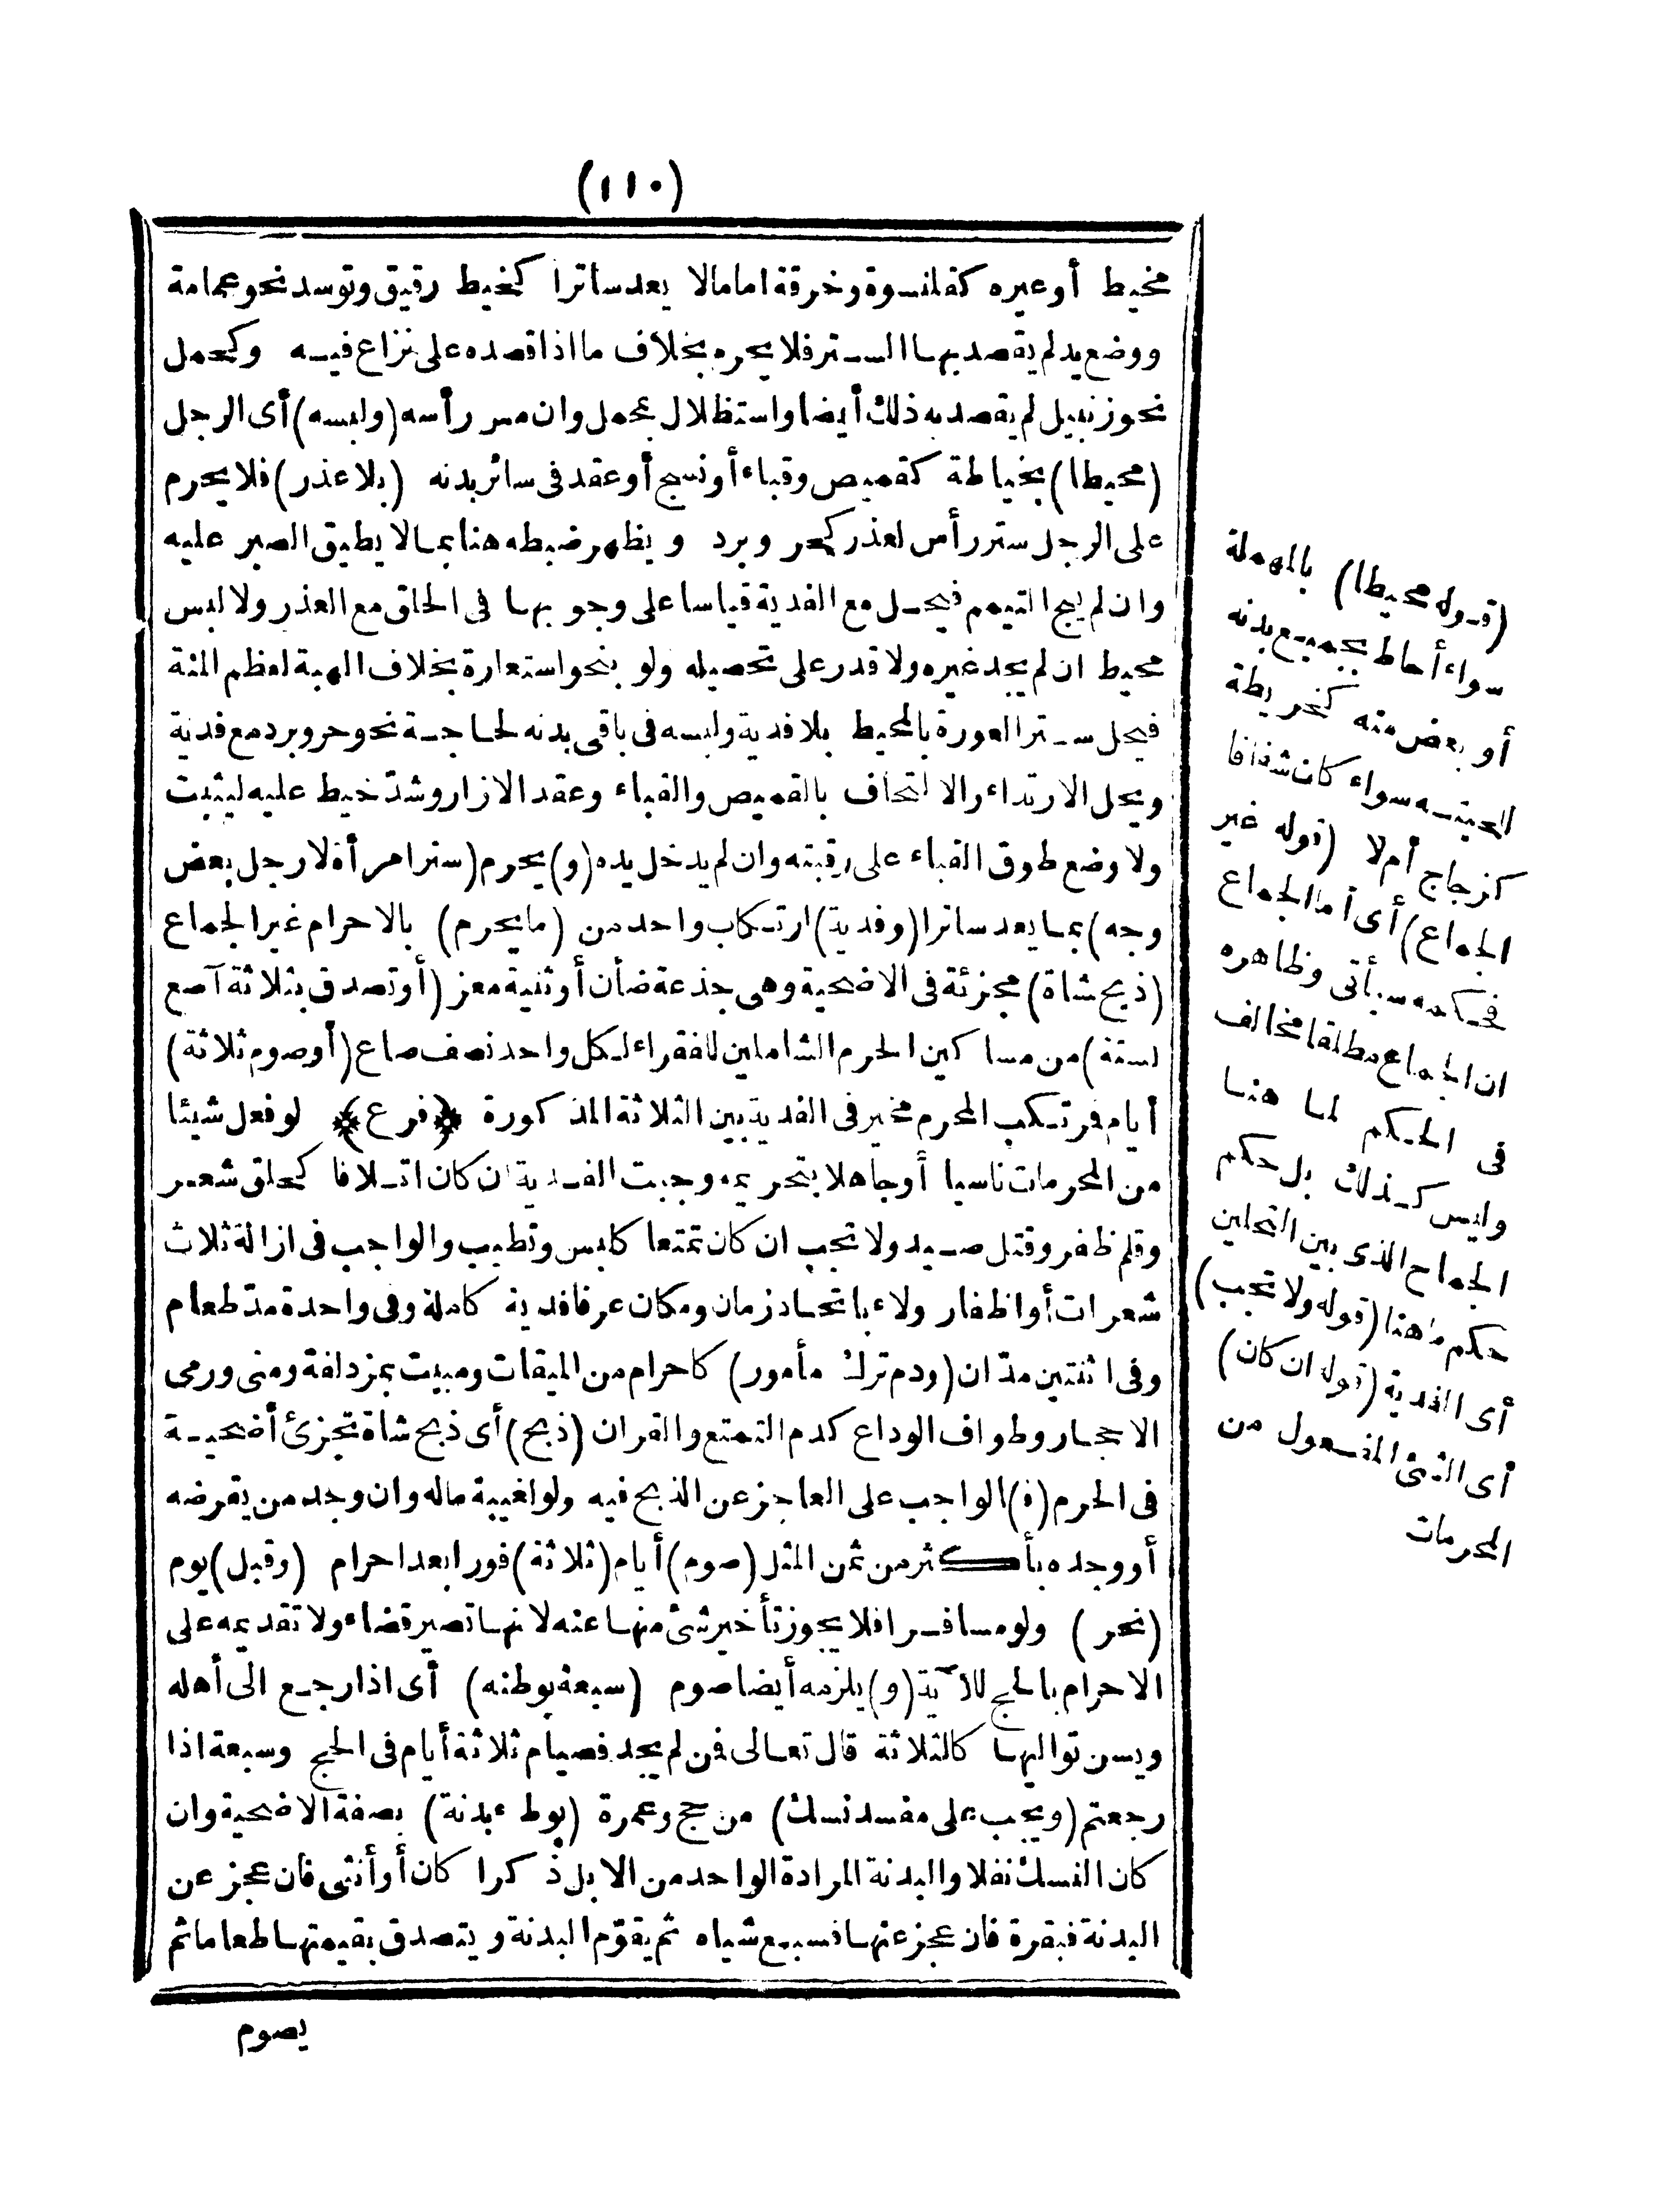 (١١٠)
مخيط أو غيره كقلنسوة وخرقة اما مالا يعد ساترا كخيط رقيق وتوسد نحو عمامة
ووضع يد لم يقصد بها الستر فلا يحرم بخلاف ما اذا قصده على نزاع فيه وكحمل
نحو زنبيل لم يقصد به ذلك أيضا واستظلال بمحمل وان مس رأسه (ولبسه) أى الرجل
(محيطا) بخياطة كقميص وقباء أو نسج أو عقد فى سائر بدنه (بلا عذر) فلا يحرم
على الرجل ستر رأس لعذر كحر وبرد ويظهر ضبطه هنا بما لا يطيق الصبر عليه
وان لم يبح التيمم فيحل مع الفدية قياسا على وجوبها فى الحلق مع العذر ولا لبس
محيط ان لم يجد غيره ولا قدر على تحصيله ولو بنحو استعارة بخلاف الهبة لعظم المنة
فيحل ستر العورة بالمحيط بلا فدية ولبسه فى باقى بدنه لحاجة نحو حر وبرد مع فدية
ويحل الارتداء والالتحاف بالقميص والقباء وعقد الازار وشد خيط عليه ليثبت
ولا وضع طوق القباء على رقبته وان لم يدخل يده (و) يحرم (ستر امرأة لا رجل بعض
وجه) بما يعد ساترا (وفدية) ارتكاب واحد من (ما يحرم) بالاحرام غير الجماع
(ذبح شاة) مجزئة فى الاضحية وهى جذعة ضأن أو ثنية معز (أو تصدق بثلاثة آصع
لستة) من مساكين الحرم الشاملين للفقراء لكل واحد نصف صاع (أو صوم ثلاثة)
أيام فمرتكب المحرم مخير فى الفدية بين الثلاثة المذكورة ﴿فرع﴾ لو فعل شيئا
من المحرمات ناسيا أو جاهلا بتحريمه وجبت الفدية ان كان اتلافا كحلق شعر
وقلم ظفر وقتل صيد ولا تجب ان كان تمتعا كلبس وتطيب والواجب فى ازالة ثلاث
شعرات أو اظفار ولاء باتحاد زمان ومكان عرفا فدية كاملة وفى واحدة مدّ طعام
وفى اثنتين مدّان (ودم ترك مأمور) كاحرام من الميقات ومبيت بمزدلفة ومنى ورمى
الاحجار وطواف الوداع كدم التمتع والقران (ذبح) أى ذبح شاة تجزئ أضحية
فى الحرم (ف) الواجب على العاجز عن الذبح فيه ولو لغيبة ماله وان وجد من يقرضه
أو وجده بأكثر من ثمن المثل (صوم) أيام (ثلاثة) فورا بعد احرام (وقبل) يوم
(نحر) ولو مسافرا فلا يجوز تأخير شئ منها عنه لانها تصير قضاء ولا تقديمه على
الاحرام بالحج للآية (و) يلزمه أيضا صوم (سبعة بوطنه) أى اذا رجع الى أهله
ويسن تواليها كالثلاثة قال تعالى فمن لم يجد فصيام ثلاثة أيام فى الحج وسبعة اذا
رجعتم (ويجب على مفسد نسك) من حج وعمرة (بوطء بدنة) بصفة الاضحية وان
كان النسك نفلا والبدنة المرادة الواحد من الابل ذكرا كان أو أنثى فان عجز عن
البدنة فبقرة فان عجز عنها فسبع شياه ثم يقوّم البدنة ويتصدق بقيمتها طعاما ثم
يصوم
(قوله محيطا) بالمهملة
سواء أحاط بجميع بدنه
أو بعض منه كخريطة
للحيته سواء كان شفافا
كزجاج أم لا (قوله غير
الجماع) أى أما الجماع
فحكمه سيأتى وظاهره
ان الجماع مطلقا مخالف
فى الحكم لما هنا
وليس كذلك بل حكم
الجماع الذى بين التحللين
حكم ما هنا (قوله ولا تجب)
أى الفدية (قوله ان كان)
أى الشئ المفعول من
المحرمات